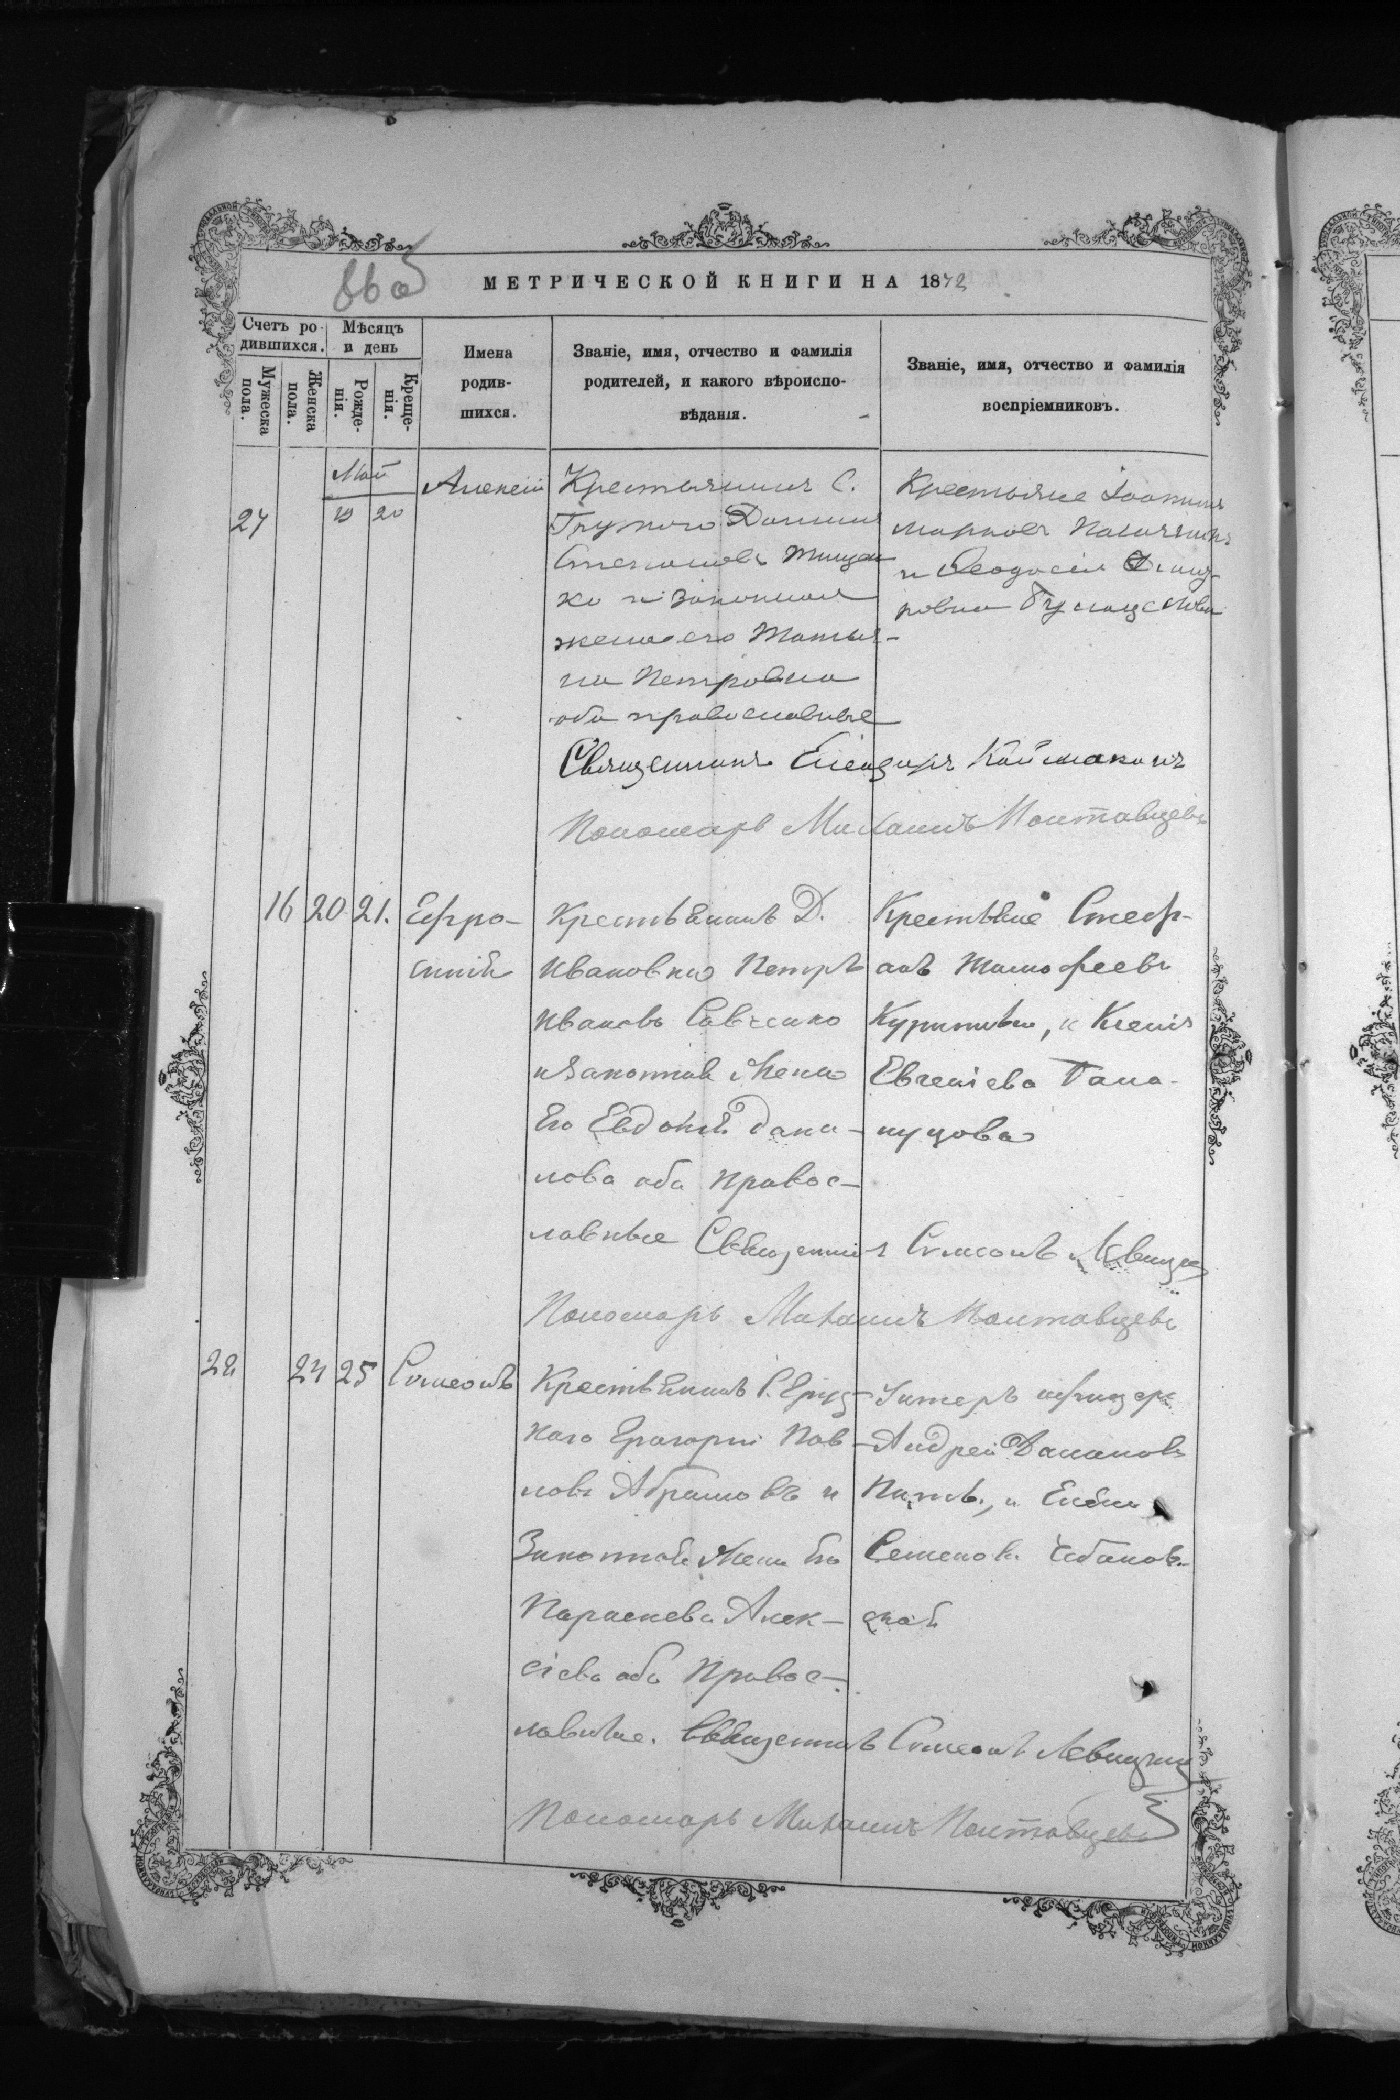 МЕТРИЧЕСКОЙ КНИГИ НА 1872
Счетъ ро-
дившихся.
Мѣсяцъ
и день
Мужеска
пола.
Женска
пола.
Рожде-
нія.
Креще-
нія.
Имена
родив-
шихся.
Званіе, имя, отчество и фамилія
родителей, и какого вѣроиспо-
вѣданія.
Званіе, имя, отчество и фамилія
воспріемниковъ.
Май
27 19 20
Алексій
Крестьянинъ С.
Даніилъ
Степановъ Тищен
ко и законная
жена его Татья-
на Петровна
оба православные
Крестьяне Іоаннъ
Марковъ
и Ѳеодосія
ровна
Священникъ Елеазаръ Каймаканъ
Пономарь Михаилъ Полтавцевъ
16 20 21. Ефро-
синія
Крестьянинъ Д.
Ивановка Петръ
Ивановъ Савченко
и Законная Жена
Его Евдокія Дани-
лова оба Правос-
лавные
Крестьяне Стеф-
анъ Тимофеевъ
и Ксенія
Евгеніева
Священникъ Симеонъ Левицкій
Пономарь Михаилъ Полтавцевъ
28 24 25 Симеонъ
Крестьянинъ С.
Григорій Пав-
ловъ Абрамовъ и
Законная Жена Его
Параскева Алек-
сіева оба Правос-
лавные.
Унтеръ офицеръ
Андрей
и
Семенова Чебанов-
ская
Священникъ Симеонъ Левицкій
Пономарь Михаилъ Полтавцевъ